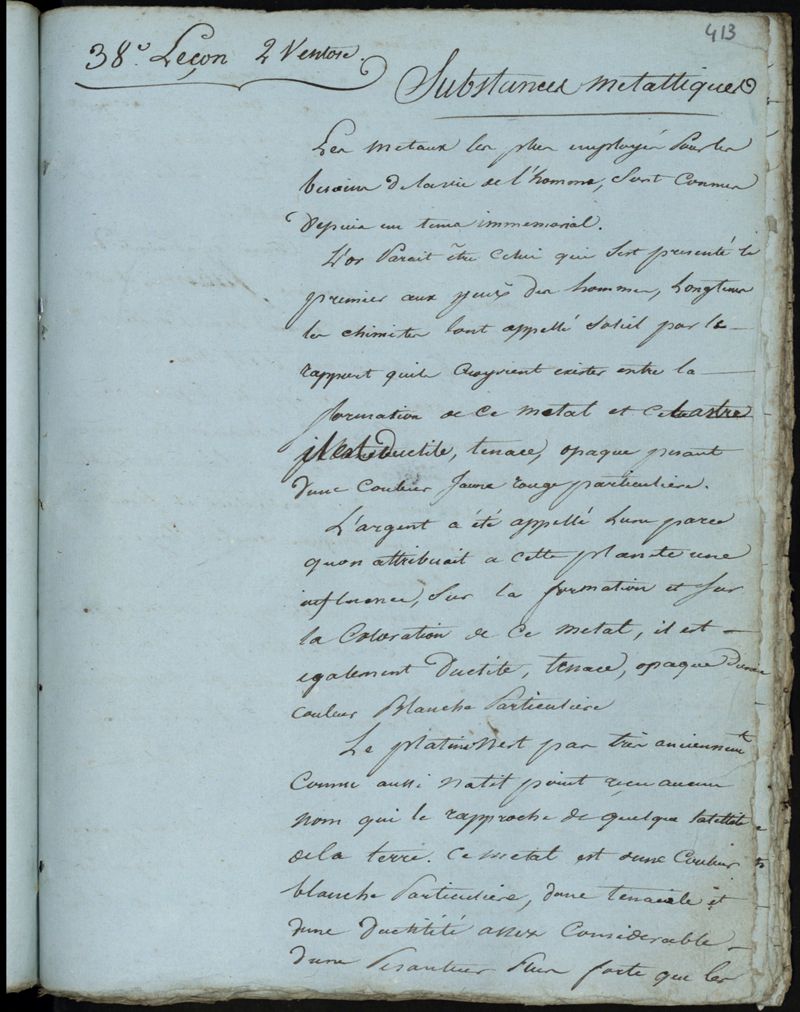 413
38e. Leçon 2 Ventose.
Substances metalliques
Les metaux les plus employés pour les
besoins de la vie de l'homme, sont connus
depuis un tems immemorial.
L'or Parait être celui qui s'est presenté le
premier aux yeux des hommes, Longtems
les chimistes l'ont appellé soleil par le
rapport quils croyoient exister entre la
formation de ce metal et cet astre
il est Ductile, tenace, opaque pesant
d'une couleur jaune rouge particuliere.
L'argent a été appellé Lune parce
quon attribuait a cette planete une
influence, sur la formation et sur
la coloration de ce metal, il est
egalement Ductile, tenace, opaque d'une
couleur Blanche Particuliere
Le platine n'est pas très anciennemt
connu aussi natil point reçu aucun
nom qui le rapproche de quelque satellite
de la terre. ce metal est d'une couleur
blanche Particuliere, d'une tenacité et
d'une ductilité assez considerable
d'une Pesanteur plus forte que les